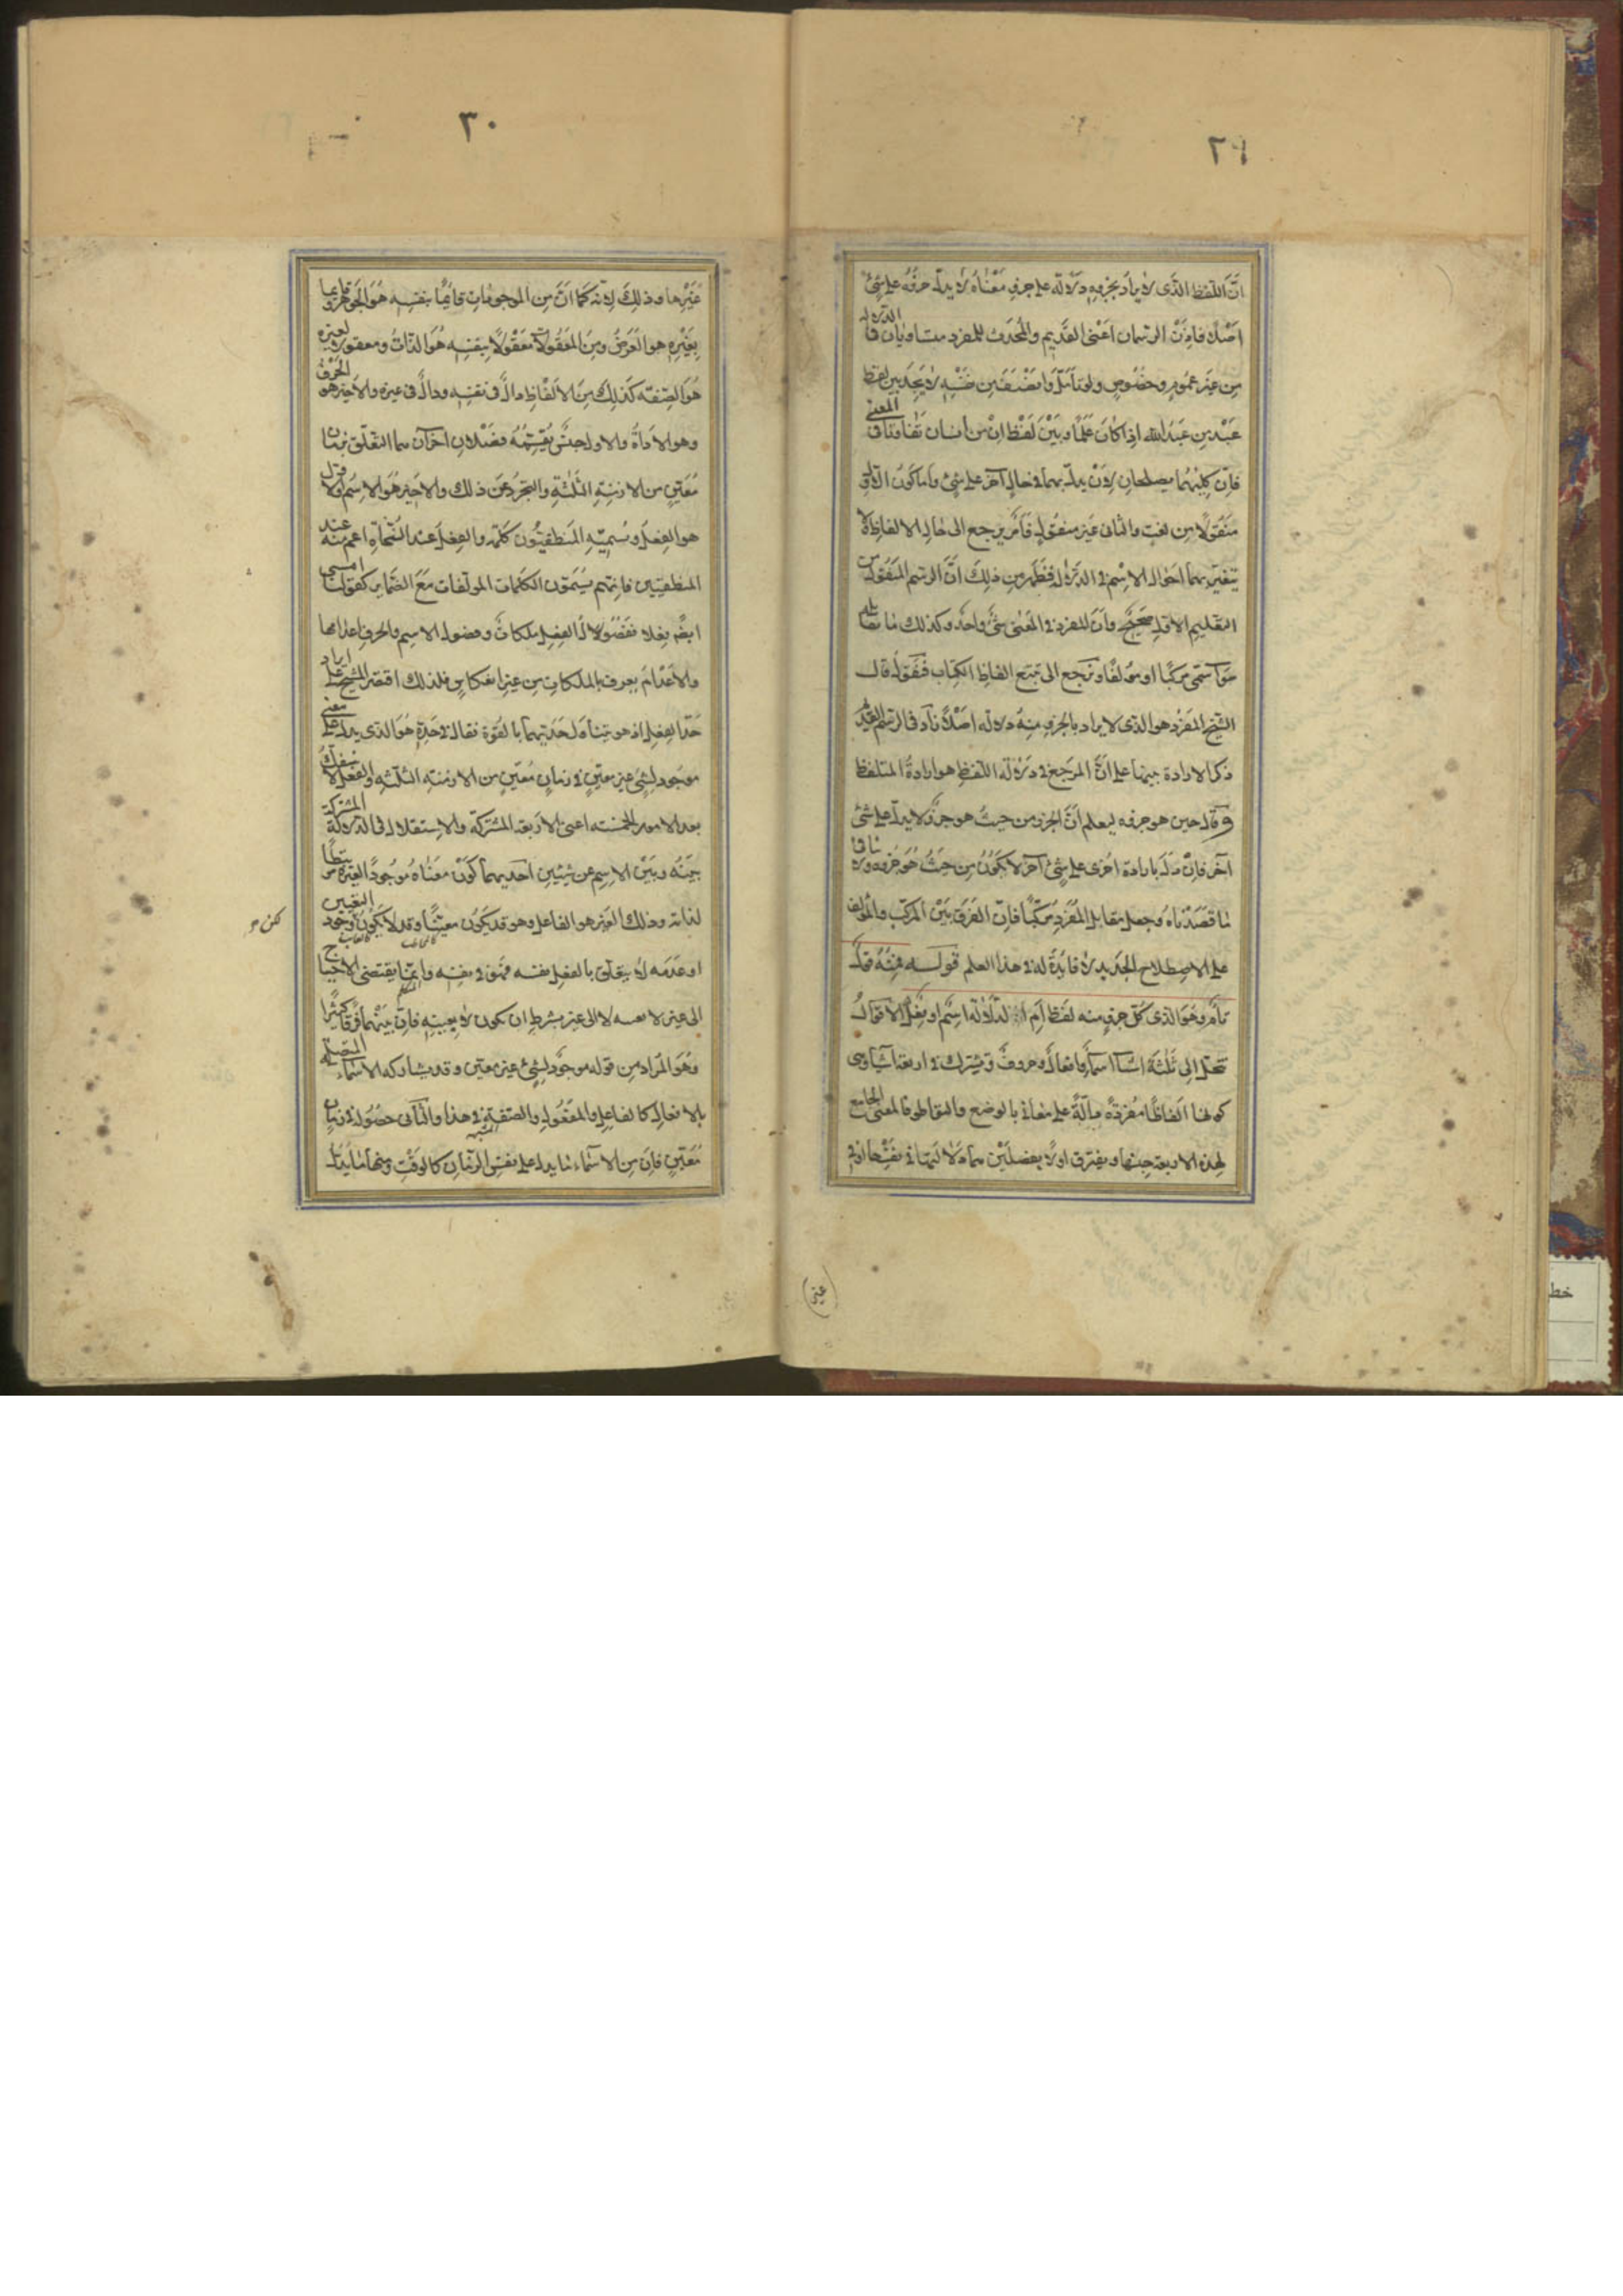 ٢٩
انّ اللفظ الذى لا يراد بجزوه دلالة على جزء معناه لا يدلّ جزؤه على شئ
اصلا فاذن الرسمان اعنى القديم والمحدث للمفرد متساويان فى الدلالة
من غير عموم وخصوص ولو تأمل وانصف من نفسه لا يجد بين لفظ
عبد من عبد الله اذا كان علما وبين لفظ ان من انسان تفاوتا فى المعنى
فان كليهما يصلحان لان يدلّ بهما فى حال آخر على شئ واما كون الاول
منقولا من نعت والثانى غير منقول فامر يرجع الى حال الالفاظ لا
يتغير بهما احوال الاسم فى الدلالة فظهر من ذلك انّ الرسم المنقول من
التعليم الاول صحيح وان للمفرد فى المعنى شئ واحد وكذلك ما يقابله
سوآ سمى مركبا او مؤلفا ونرجع الى تتبع الفاظ الكتاب فنقول قال
الشيخ المفرد هو الذى لا يراد بالجزء منه دلالة اصلا زاد فى الرسم القديم
ذكر الارادة تنبيها على انّ المرجع فى دلالة اللفظ هو ارادة المتلفظ
وقال حين هو جزؤه ليعلم انّ الجزء من حيث هو جزء لا يدلّ على شئ
آخر فان دلّ بارادة اخرى على شئ آخر لا يكون من حيث هو جزؤه ولا ينافى
ما قصدناه وجعل مقابل المفرد مركبا فان الفرق بين المركب والمؤلف
على الاصطلاح الجديد لا فايدة له فى هذا العلم قولــه فمنه قول
تام وهو الذى كل جزء منه لفظ تام الدلالة اسم او فعل الاقوال
تنحل الى ثلثة اشيآ اسمآ وافعال وحروف وتشترك فى اربعة اشيآ وهى
كونها الفاظا مفردة دالة على معانى بالوضع والتواطو فالمعنى الجامع
لهذه الاربعة جنسها ويفترق اولا بفصلين هما دلالتها فى نفسها او فى
(غير)
٣٠
غيرها وذلك لانه كما انّ من الموجودات قايما بنفسه هو الجوهر وقايما
بغيره هو العرض ومن المعقولات معقولا بنفسه هو الذات ومعقولا لغيره
هو الصفة كذلك من الالفاظ دالّ فى نفسه ودالّ فى غيره والاخير هو الحرف
وهو الاداة والاول جنس يقسمه فصلان اخرآن هما التعلق بزمان
معين من الازمنة الثلثة والتجرد عن ذلك والاخير هو الاسم والاول
هو الفعل ويسميه المنطقيون كلمة والفعل عند النحاة اعم منه عند
المنطقيين فانهم يسمون الكلمات المولفات مع الضماير كقولنا امشى
ايضا فعلا ففصول الفعل ملكات وفصول الاسم والحرف اعدامها
والاعدام يعرف بالملكات من غير انعكاس فلذلك اقتصر الشيخ على ايراد
حدّ الفعل اذ هو يتناول حديهما بالقوة فقال فى حده هو الذى يدل على معنى
موجود لشئ غير معين فى زمان معين من الازمنة الثلثة والفعل لا ينفك
بعد الامور الخمسة اعنى الاربعة المشتركة والاستقلال فى الدلالة المشتركة
بينه وبين الاسم عن شيئين احديهما كون معناه موجودا لغيره مرتبطا
لذاته وذلك الغير هو الفاعل وهو قد يكون معينا وقد لا يكون لوجود التعيين
او عدمه لا يتعلق بالفعل نفسه فهو فى نفسه وانما يقتضى الاحتياج
الى غير لا بعينه لا الى غير بشرط ان يكون لا بعينه فان بينهما فرقا كثيرا
وهو المراد من قوله موجود لشئ غير معين وقد يشاركه الاسماء المتصلة
بالافعال كالفاعل والمفعول والصفة المشبهة فى هذا والثانى حصوله فى زمان
معين فان من الاسماء ما يدل على نفس الزمان كالوقت ومنها ما يدل